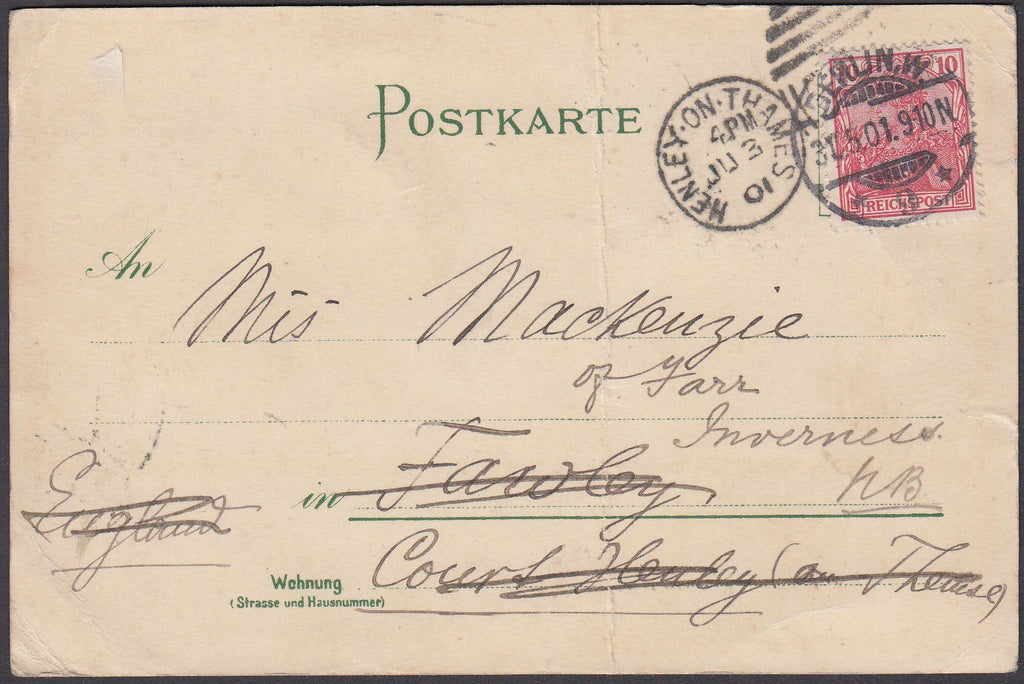 POSTKARTE
HENLEY·ON·THAMES
4PM
JU 3
01
BERLIN.W.
31.5.01.910N
10
REICHSPOST
An
Miss Mackenzie
of Farr
Inverness.
in Fawley
NB
England
Court Henley (on Themse)
Wohnung
(Strasse und Hausnummer)